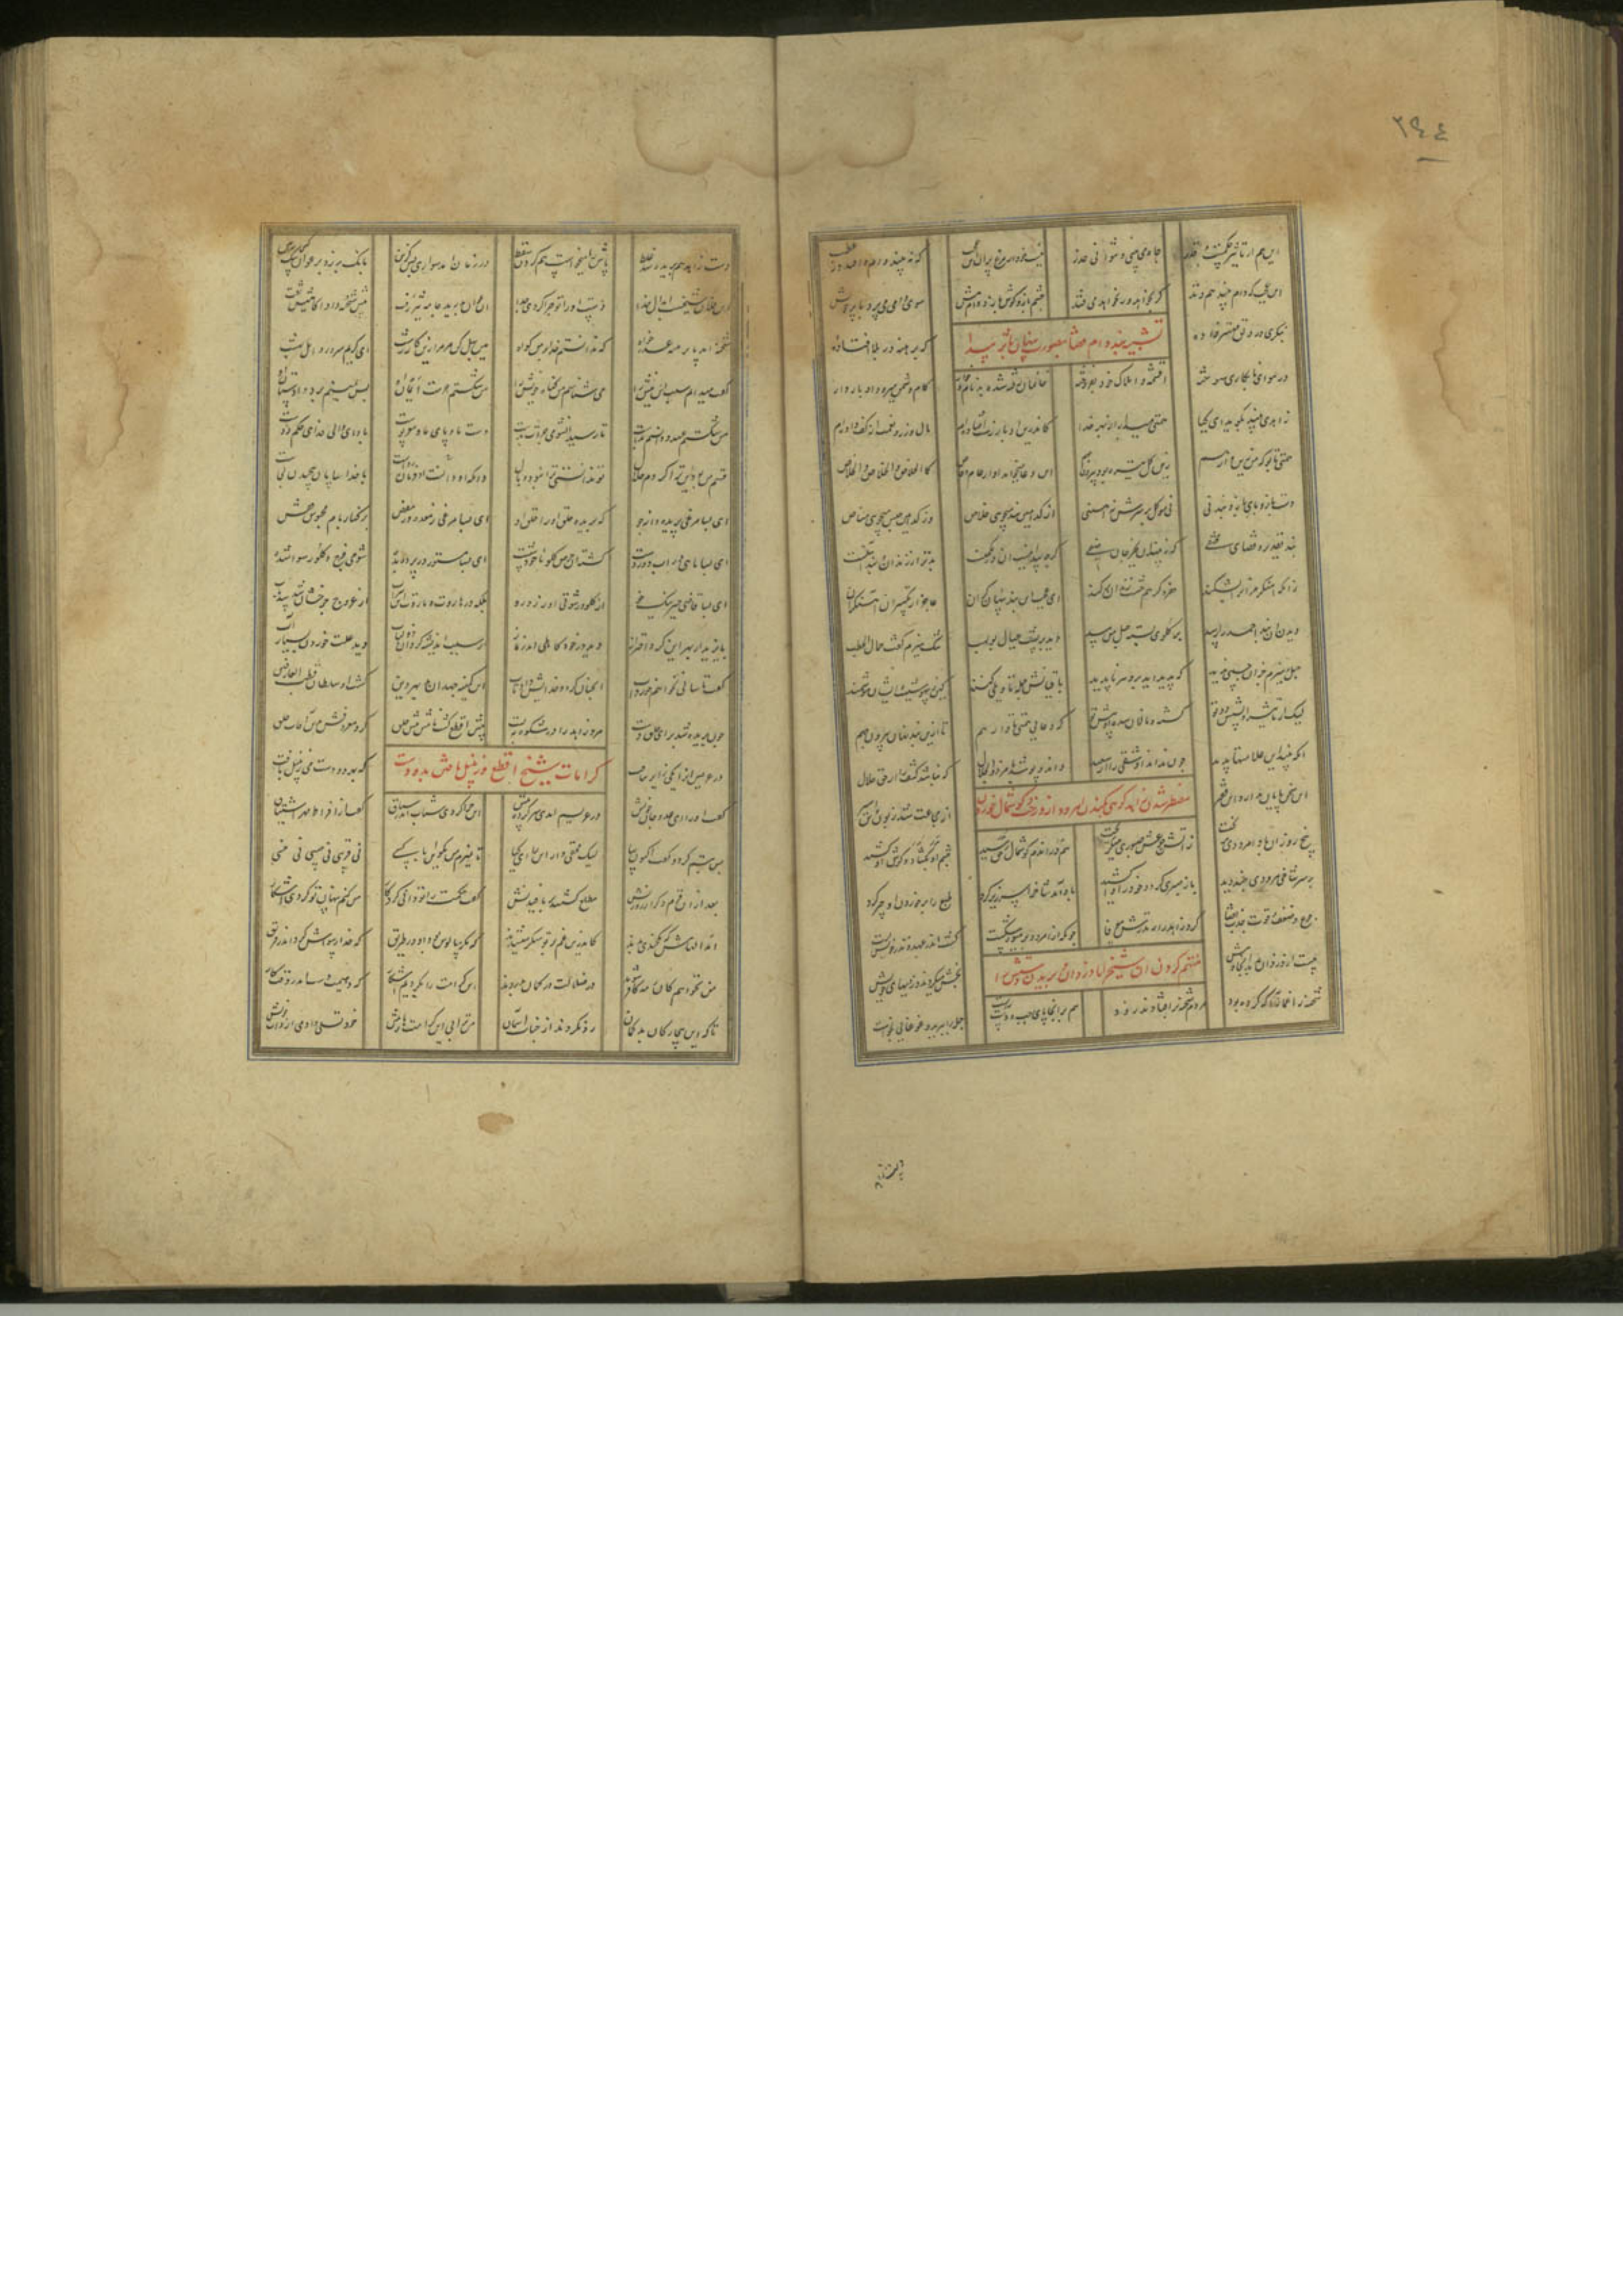 ٢٩٤
این هم از تاثیر حکمست و قدر چاه می بینی و نتوانی حذر نیست خود از مرغ پران این عجب کو نبیند دام و افتد در عطب
این عجب که دام بیند هم وتد گر بخواهد ور نخواهد می فتد چشم باز و گوش باز و دام پیش سوی دامی می پرد با پر خویش
تشبیه بند و دام قضا بصورت پنهان باثر پیدا
بنگری در دلق مهتر زاده سر برهنه در بلا افتاده
در هوای نابکاری سوخته اقمشه و املاک خود بفروخته خانمان رفته شده بدنام و خوار کام دشمن میرود ادبار وار
زاهدی بیند بگوید ای کیا همتی میدار از بهر خدا کاندرین ادبار زشت افتاده ام مال و زر و نعمت از کف داده ام
همتی تا بوکه من زین وارهم زین گل تیره بود که برجهم این دعا میخواهد او از عام و خاص کالخلاص و الخلاص و الخلاص
دست باز و پای باز و بند نی نی موکل بر سرش نه آهنی از کدامین بند میجویی خلاص وز کدامین حبس میجویی مناص
بند تقدیر و قضای مختفی که نبیند آن بجز جان صفی گرچه پیدا نیست آن در مکمنست بدتر از زندان و بند آهنست
زانکه آهنگر مر آنرا بشکند حفره گر هم خشت زندان بر کند ای عجب این بند پنهان گران عاجز از تکسیر آن آهنگران
دیدن آن بند احمد را رسد بر گلوی بسته حبل من مسد دید بر پشت عیال بولهب تنگ هیزم گفت حمال الحطب
حبل و هیزم را جز او چشمی ندید که پدید آید برو هر ناپدید باقیانش جمله تاویلی کنند کین ز بیهوشیست و ایشان هوشمند
لیک از تاثیر آن پشتش دوتو گشته و نالان شده او پیش تو که دعایی همتی تا وارهم تا ازین بند نهان بیرون جهم
آنکه بیند این علامتها پدید چون نداند او شقی را از سعید داند و پوشد بامر ذوالجلال که نباشد کشف راز حق حلال
این سخن پایان ندارد آن فقیر از مجاعت شد زبون و تن اسیر
مضطر شدن زاهد کوهی بکندن امرود از درخت و گوشمال خوردن
پنج روز آن باد امرودی نریخت ز آتش جوعش صبوری میگریخت هم در آن دم گوشمال حق رسید چشم او بگشاد و گوش او کشید
بر سر شاخی مرودی چند دید باز صبری کرد و خود را وا کشید باد آمد شاخ را سر زیر کرد طبع را بر خوردن او چیر کرد
جوع و ضعف و قوت جذب قضا کرد زاهد را ز نذرش بی وفا چونکه از امرودبن میوه سکست گشت اندر عهد و نذر خویش سست
متهم کردن آن شیخ را با دزدان و بریدن دستش را
بیست از دزدان بدند آنجا و بیش بخش میکردند دزدیهای خویش
شحنه را غماز آگه کرده بود مردم شحنه بر افتادند زود هم بدانجا پای چپ و دست راست جمله را ببرید و غوغایی بخاست
دست زاهد هم بریده شد غلط پاش را میخواست هم کردن سقط در زمان آمد سواری بس گزین بانگ بر زد بر عوان کای سگ ببین
این فلان شیخست از ابدال خدا دست او را تو چرا کردی جدا آن عوان بدرید جامه تیز رفت پیش شحنه داد آگاهیش تفت
شحنه آمد پا برهنه عذرخواه که ندانستم خدا بر من گواه هین بحل کن مر مرا زین کار زشت ای کریم و سرور اهل بهشت
گفت میدانم سبب این نیش را می شناسم من گناه خویش را من شکستم حرمت ایمان او پس یمینم برد دادستان او
من شکستم عهد و دانستم بدست تا رسید آن شومی جرات بدست دست ما و پای ما و مغز و پوست باد ای والی فدای حکم دوست
قسم من بود این ترا کردم حلال تو ندانستی ترا نبود وبال وانکه او دانست او فرمان رواست با خدا سامان پیچیدن کجاست
ای بسا مرغی پریده دانه جو که بریده حلق او را حلق او ای بسا مرغی ز معده وز مغص بر کنار بام محبوس قفص
ای بسا ماهی در آب دوردست گشته از حرص گلو ماخوذ شست ای بسا مستور در پرده بده شومی فرج و گلو رسوا شده
ای بسا قاضی حبر نیک خو از گلو و رشوتی او زرد رو بلکه در هاروت و ماروت آن شراب از عروج چرخشان شد سد باب
بایزید از بهر این کرد احتراز دید در خود کاهلی اندر نماز از سبب اندیشه کرد آن ذو لباب دید علت خوردن بسیار آب
گفت تا سالی نخواهم خورد آب آنچنان کرد و خدایش داد تاب این کمینه جهد او بد بهر دین گشت او سلطان و قطب العارفین
چون بریده شد برای حلق دست مرد زاهد را در شکوی ببست شیخ اقطع گشت نامش پیش خلق کرد معروفش بدین آفات حلق
کرامات شیخ اقطع و زنبیل بافتن بدو دست
در عریش او را یکی زایر بیافت که بدو دست می زنبیل بافت
گفت او را ای عدو جان خویش در عریشم آمدی سر کرده پیش این چرا کردی شتاب اندر سباق گفت از افراط مهر و اشتیاق
پس تبسم کرد و گفت اکنون بیا لیک مخفی دار این را ای کیا تا نمیرم من مگو این با کسی نی قرینی نی حبیبی نی خسی
بعد از آن قوم دگر از روزنش مطلع گشتند بر بافیدنش گفت حکمت را تو دانی کردگار من کنم پنهان تو کردی آشکار
آمد الهامش که یکچندی بدند کاندرین غم بر تو منکر میشدند که مگر سالوس بود او در طریق که خدا رسواش کرد اندر فریق
من نخواهم کان رمه کافر شوند در ضلالت در گمان بد روند این کرامت را بکردیم آشکار که دهیمت دست اندر وقت کار
تا که این بیچارگان بدگمان رد نگردند از جناب آسمان من ترا بی این کرامتها ز پیش خود تسلی دادمی از ذات خویش